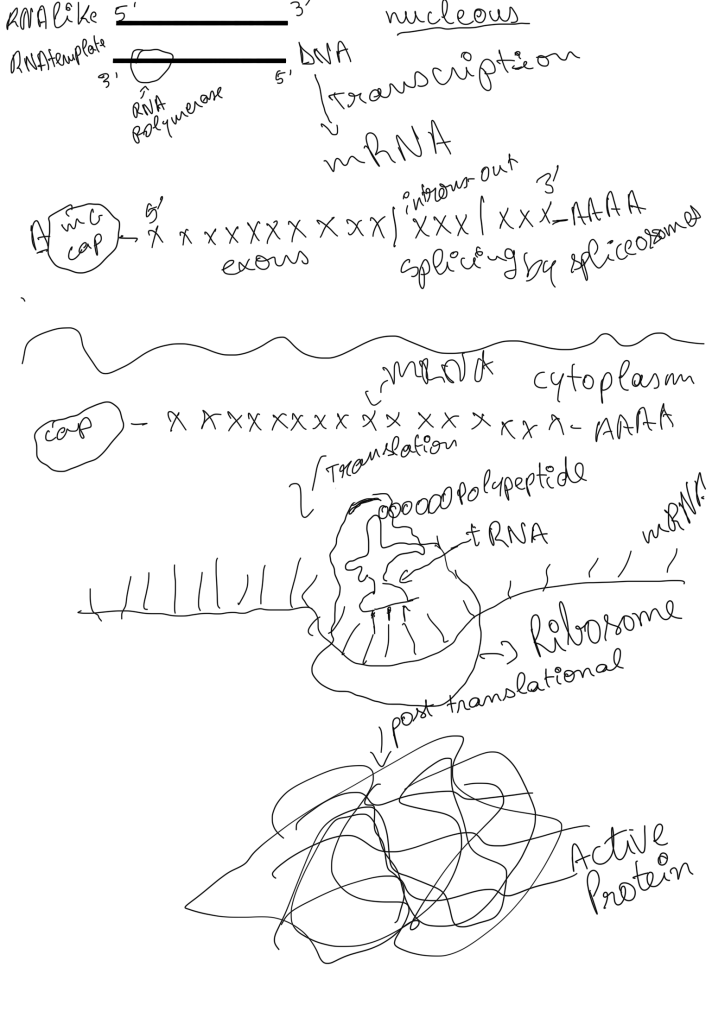 RNA like 5' 3' nucleous
RNA template DNA
3' 5'
RNA
Polymerase
Transcription
mRNA
introns out
5' 3'
mG
cap - x x x x x x x x x x | x x x | x x x - AAAA
exons splicing by spliceosomes
mRNA cytoplasm
cap - x x x x x x x x x x x x x x x x x - AAAA
Translation
polypeptide
tRNA mRNA
Ribosome
post translational
Active
Protein